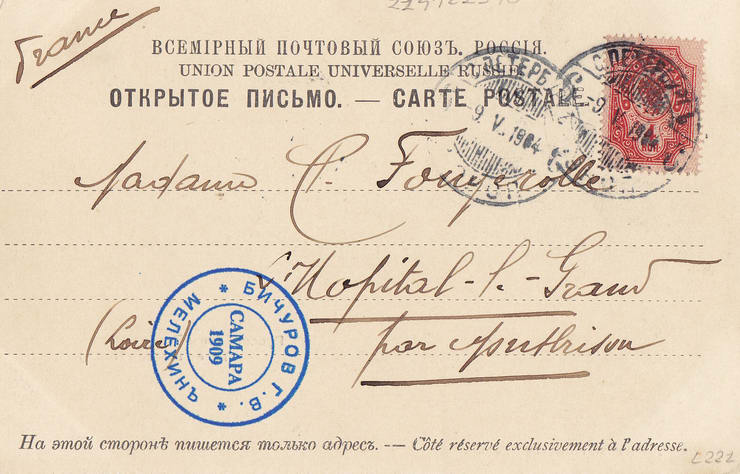 France
ВСЕМІРНЫЙ ПОЧТОВЫЙ СОЮЗЪ. РОССІЯ.
UNION POSTALE UNIVERSELLE RUSSIE
ОТКРЫТОЕ ПИСЬМО. — CARTE POSTALE.
9 V. 1904
9 V. 1904
Madame C. Fougerolle
L'Hopital-le-Grand
(Loire) par Montbrison
БИЧУРОВ Г. В. * МЕЛЕХИНИЧЪ *
САМАРА
1909
На этой сторонѣ пишется только адресъ. — Côté réservé exclusivement à l'adresse.